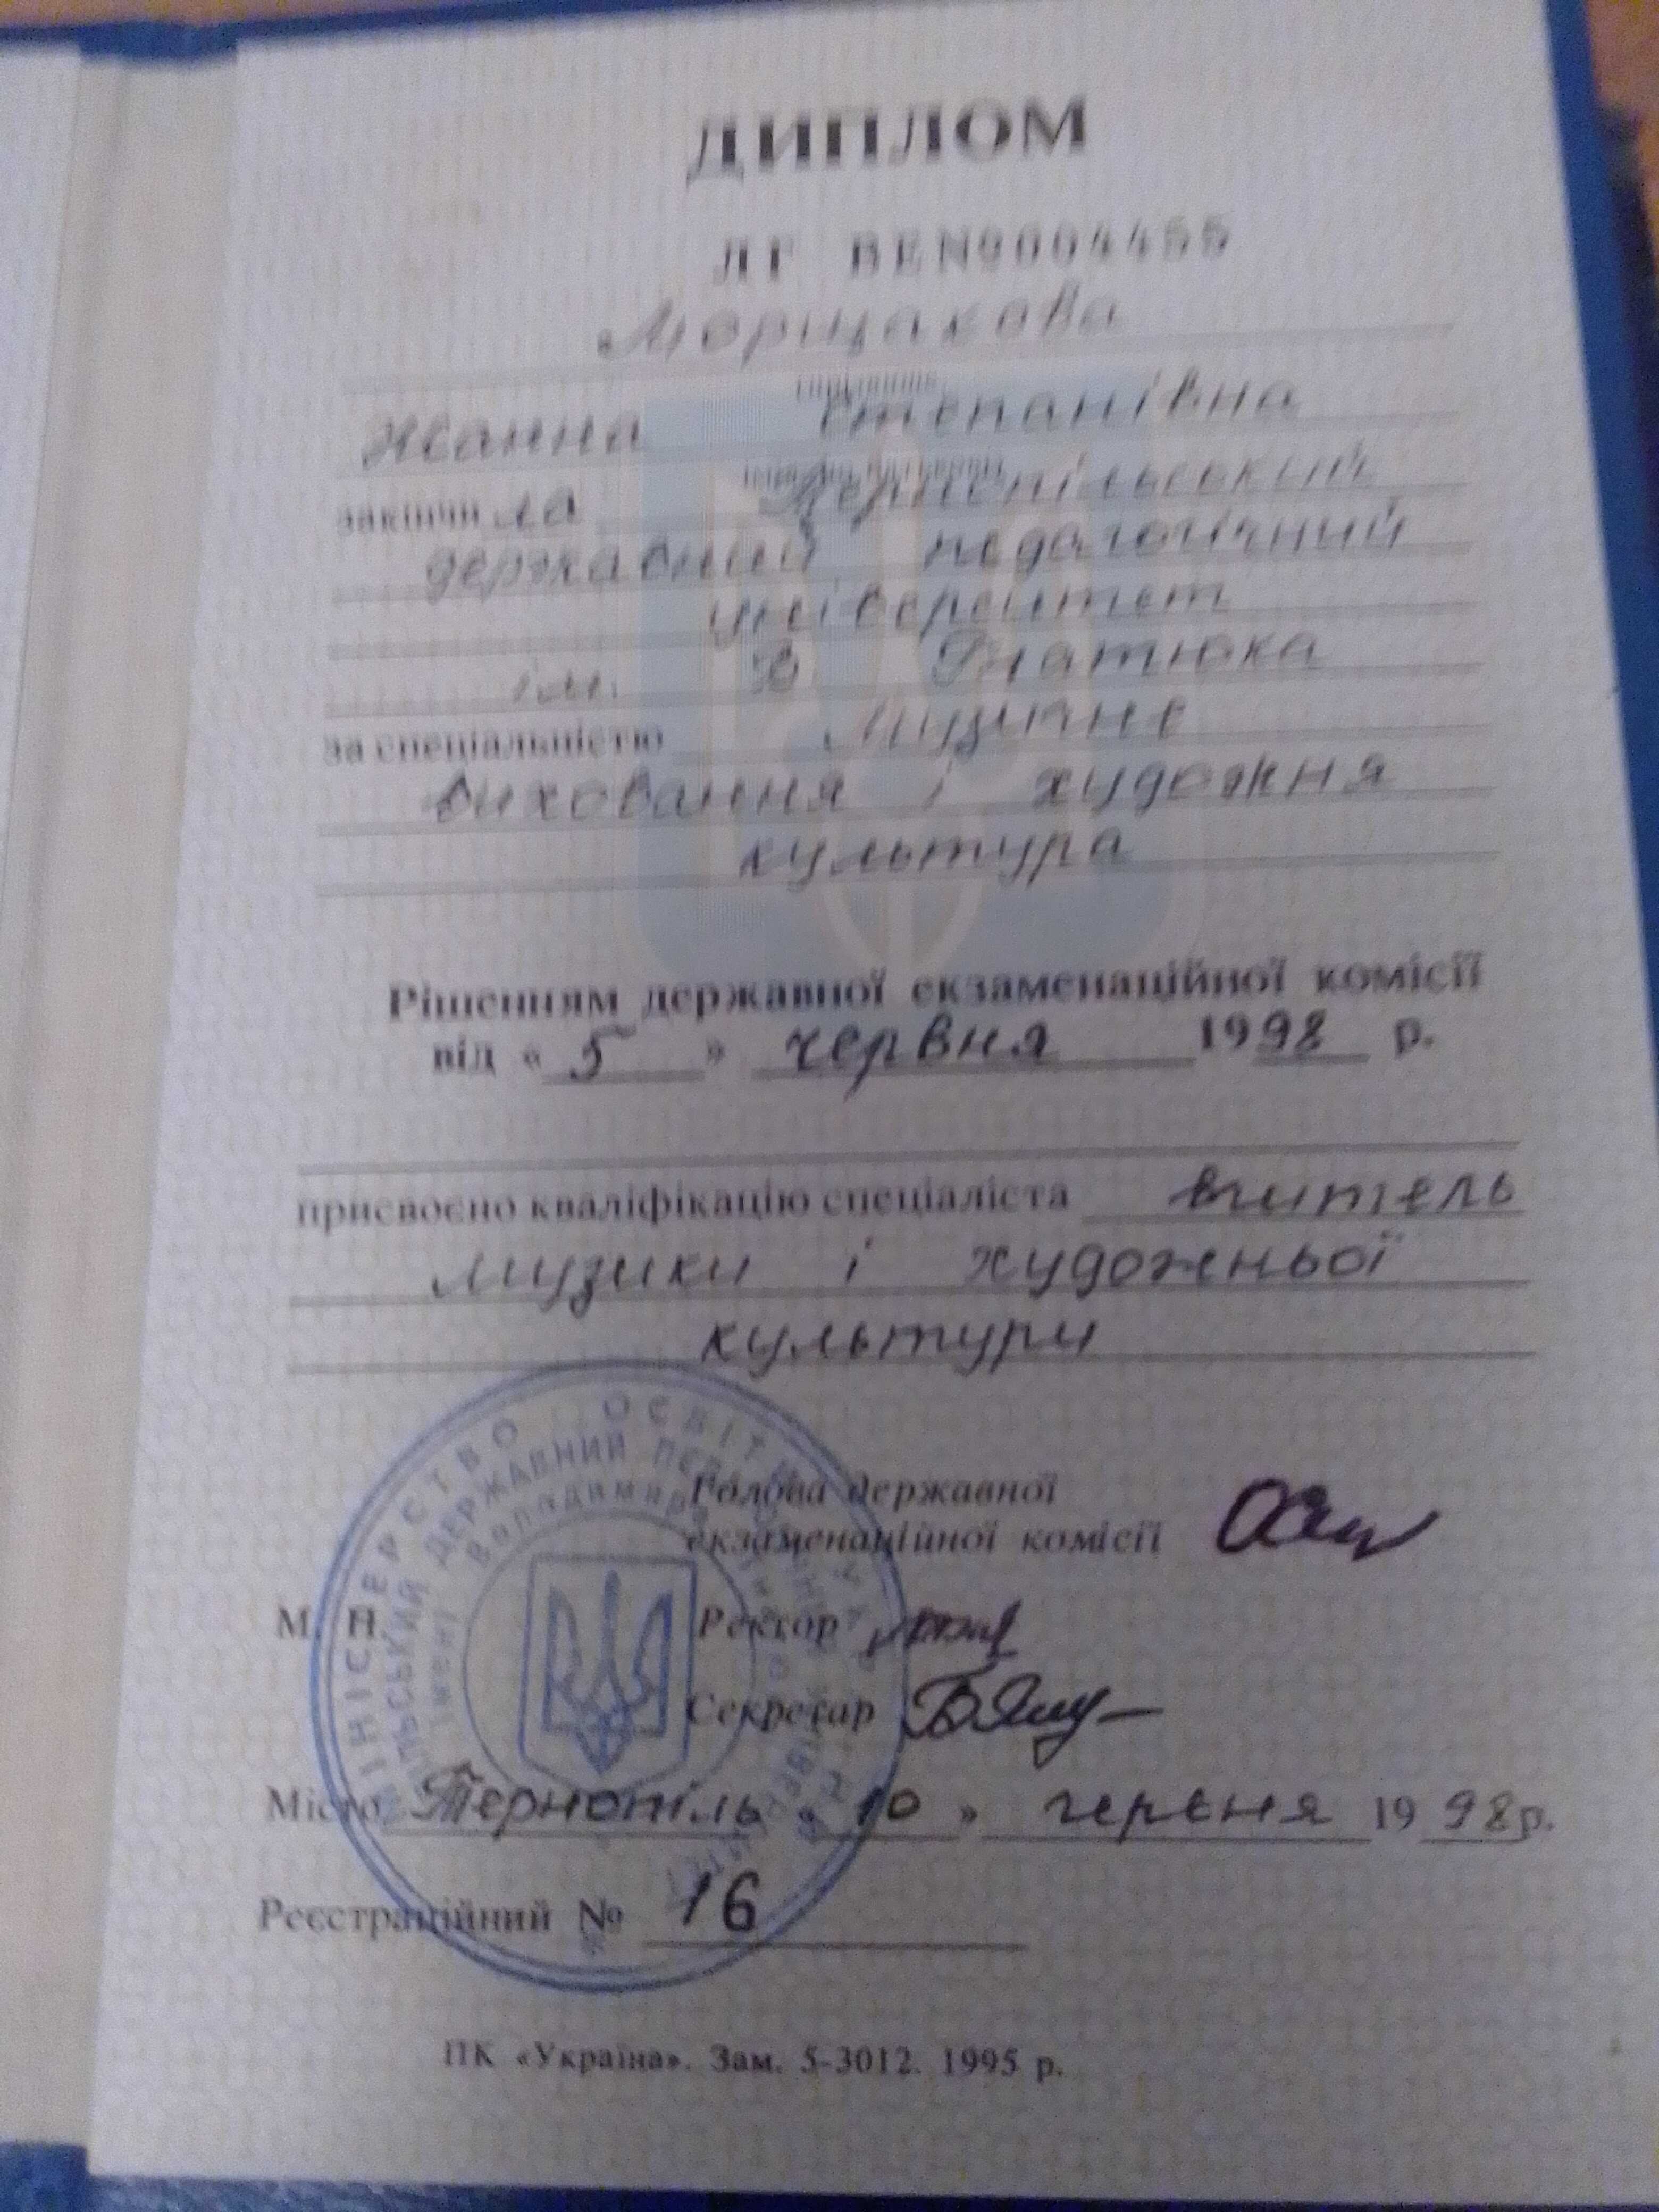 ДИПЛОМ
ЛГ ВЕ№004455
Морщакова
прізвище
Жанна Степанівна
ім'я, по батькові
закінчила Тернопільський
державний педагогічний
університет
ім. В Гнатюка
за спеціальністю музичне
виховання і художня
культура
Рішенням державної екзаменаційної комісії
від « 5 » червня 1998 р.
присвоєно кваліфікацію спеціаліста вчитель
музики і художньої
культури
Голова державної
екзаменаційної комісії
М. П.
Ректор
Секретар
Місто Тернопіль « 10 » червня 1998р.
Реєстраційний № 16
МІНІСТЕРСТВО ОСВІТИ УКРАЇНИ
ДЕРЖАВНИЙ
імені Володимира
ПК «Україна». Зам. 5-3012. 1995 р.